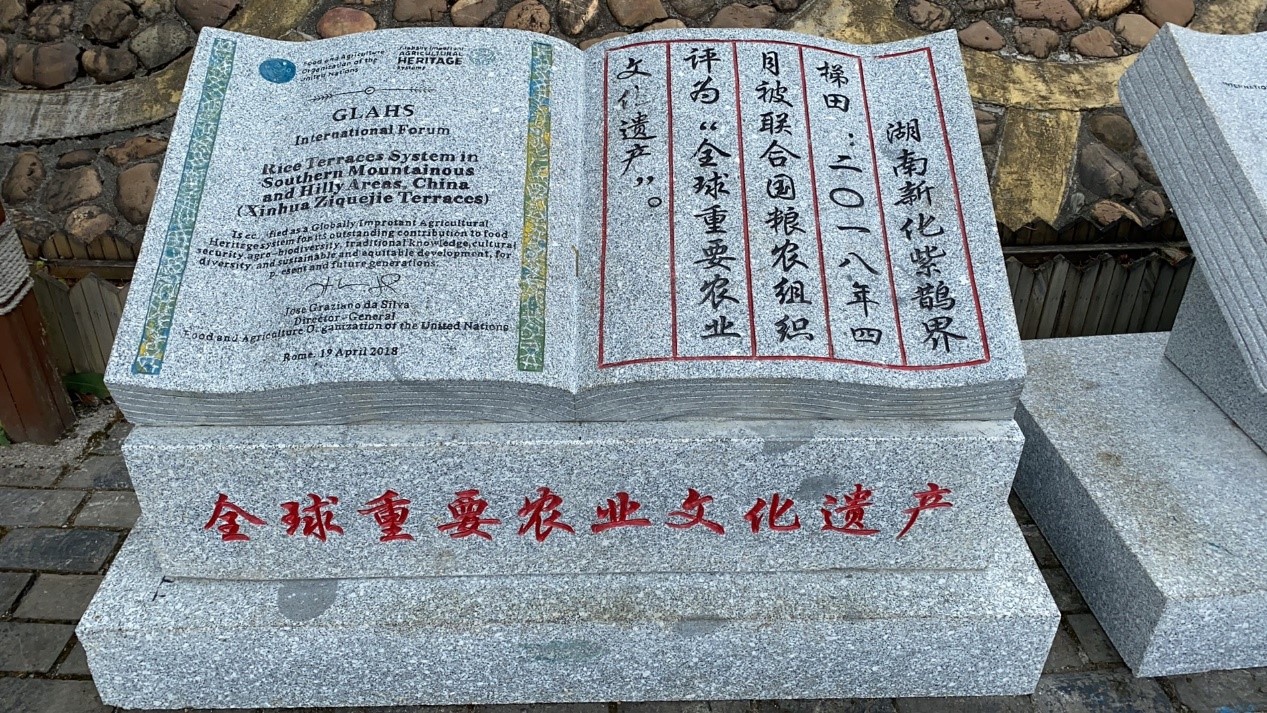 Food and Agriculture
Organization of the
United Nations
AGRICULTURAL
HERITAGE
Systems
GLAHS
International Forum
Rice Terraces System in
Southern Mountainous
and Hilly Areas, China
(Xinhua Ziquejie Terraces)
as a Globally Improtant Agricultural
Heritage system for its outstanding contribution to food
security, agro-biodiversity, traditional knowledge, cultural
diversity, and sustainable and equitable development, for
present and future generations.
Jose Graziano da Silva
Director-General
Food and Agriculture Organization of the United Nations
Rome, 19 April 2018
湖南新化紫鹊界
梯田：二〇一八年四
月被联合国粮农组织
评为“全球重要农业
文化遗产”。
全球重要农业文化遗产